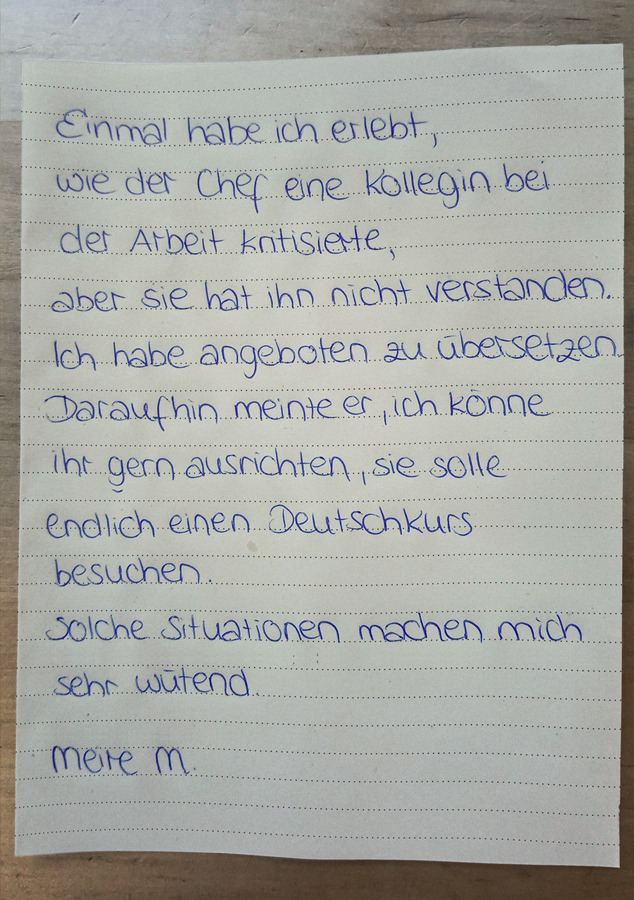 Einmal habe ich erlebt,
wie der Chef eine Kollegin bei
der Arbeit kritisierte,
aber sie hat ihn nicht verstanden.
Ich habe angeboten zu übersetzen.
Daraufhin meinte er, ich könne
ihr gern ausrichten, sie solle
endlich einen Deutschkurs
besuchen.
Solche Situationen machen mich
sehr wütend.
Meire M.